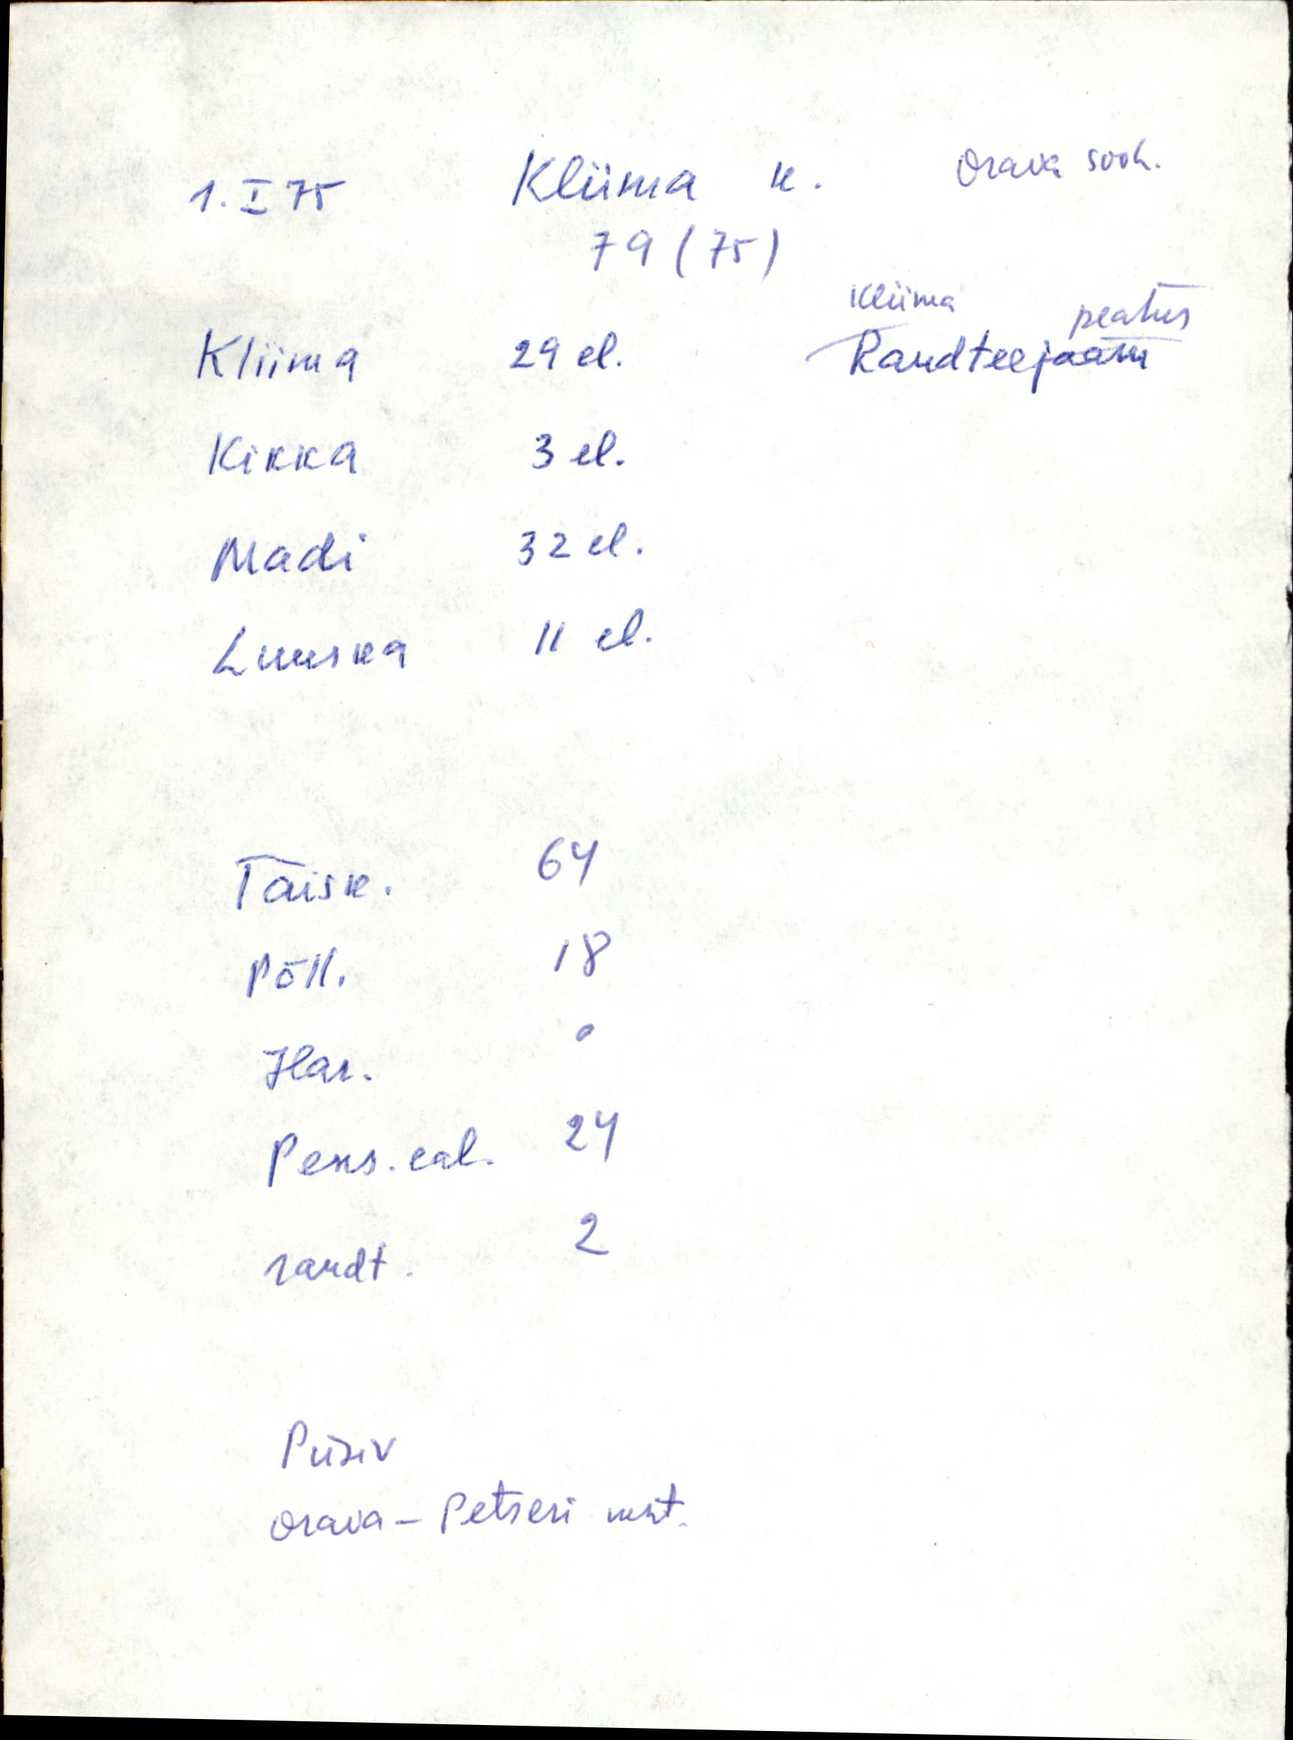 1. I 75 Kliima k. Orava sovh.
79 (75)
Kliima peatus
Kliima 29 el. Raudteejaam
Kikka 3 el.
Madi 32 el.
Luuska 11 el.
Täisk. 64
Põll. 18
Har. 0
Pens. eal. 24
raudt. 2
Püsiv
Orava - Petseri mnt.